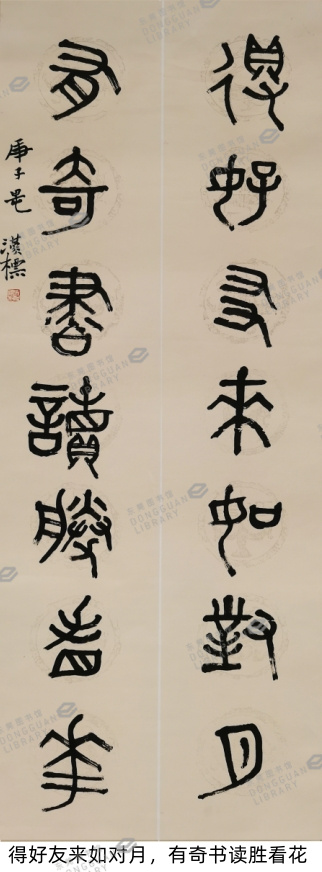 得好友来如對月
有奇書讀勝看花
庚子冕 漢標
東莞图书馆
DONGGUAN
LIBRARY
得好友来如对月，有奇书读胜看花